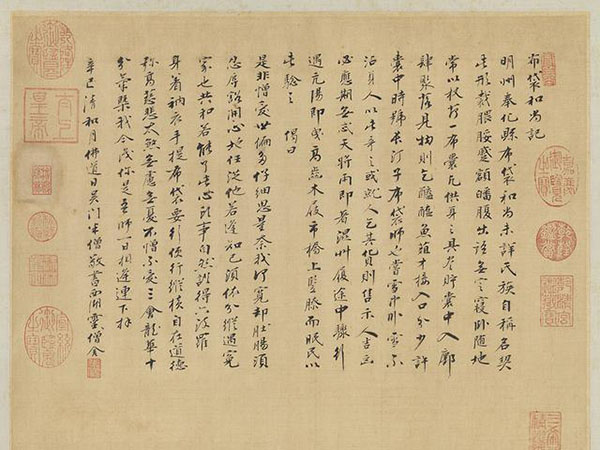 布袋和尚記
明州奉化縣布袋和尚未詳氏族自稱名契
此形裁猥脮蹙額皤腹出語無定寢卧隨地
常以杖荷一布囊凡供身之具盡貯囊中入廛
肆聚落見物則乞醯醢魚葅才接入口分少許
囊中時號長汀子布袋師也嘗雪中卧雪不
沾身人以此奇之或就人乞其貨則售示人吉凶
必應期無忒天將雨即著濕草屨途中驟行
遇亢陽即曳高齒木屐市橋上竪膝而眠民以
此驗之 偈曰
是非憎愛世偏多仔細思量奈我何寬却肚腸須
忍辱豁開心地任從他若逢知己須依分縱遇冤
家也共和若能了此心頭事自然證得六波羅
身着衲衣手提布袋要引便行縱橫自在道德
称爲慈悲大煞無慮無憂不憎不愛三會龍華十
分氣槩我今識你是吾師一日相逢連下拜
辛巳清和月佛道日吴門 僧敬書西湖靈僧舍